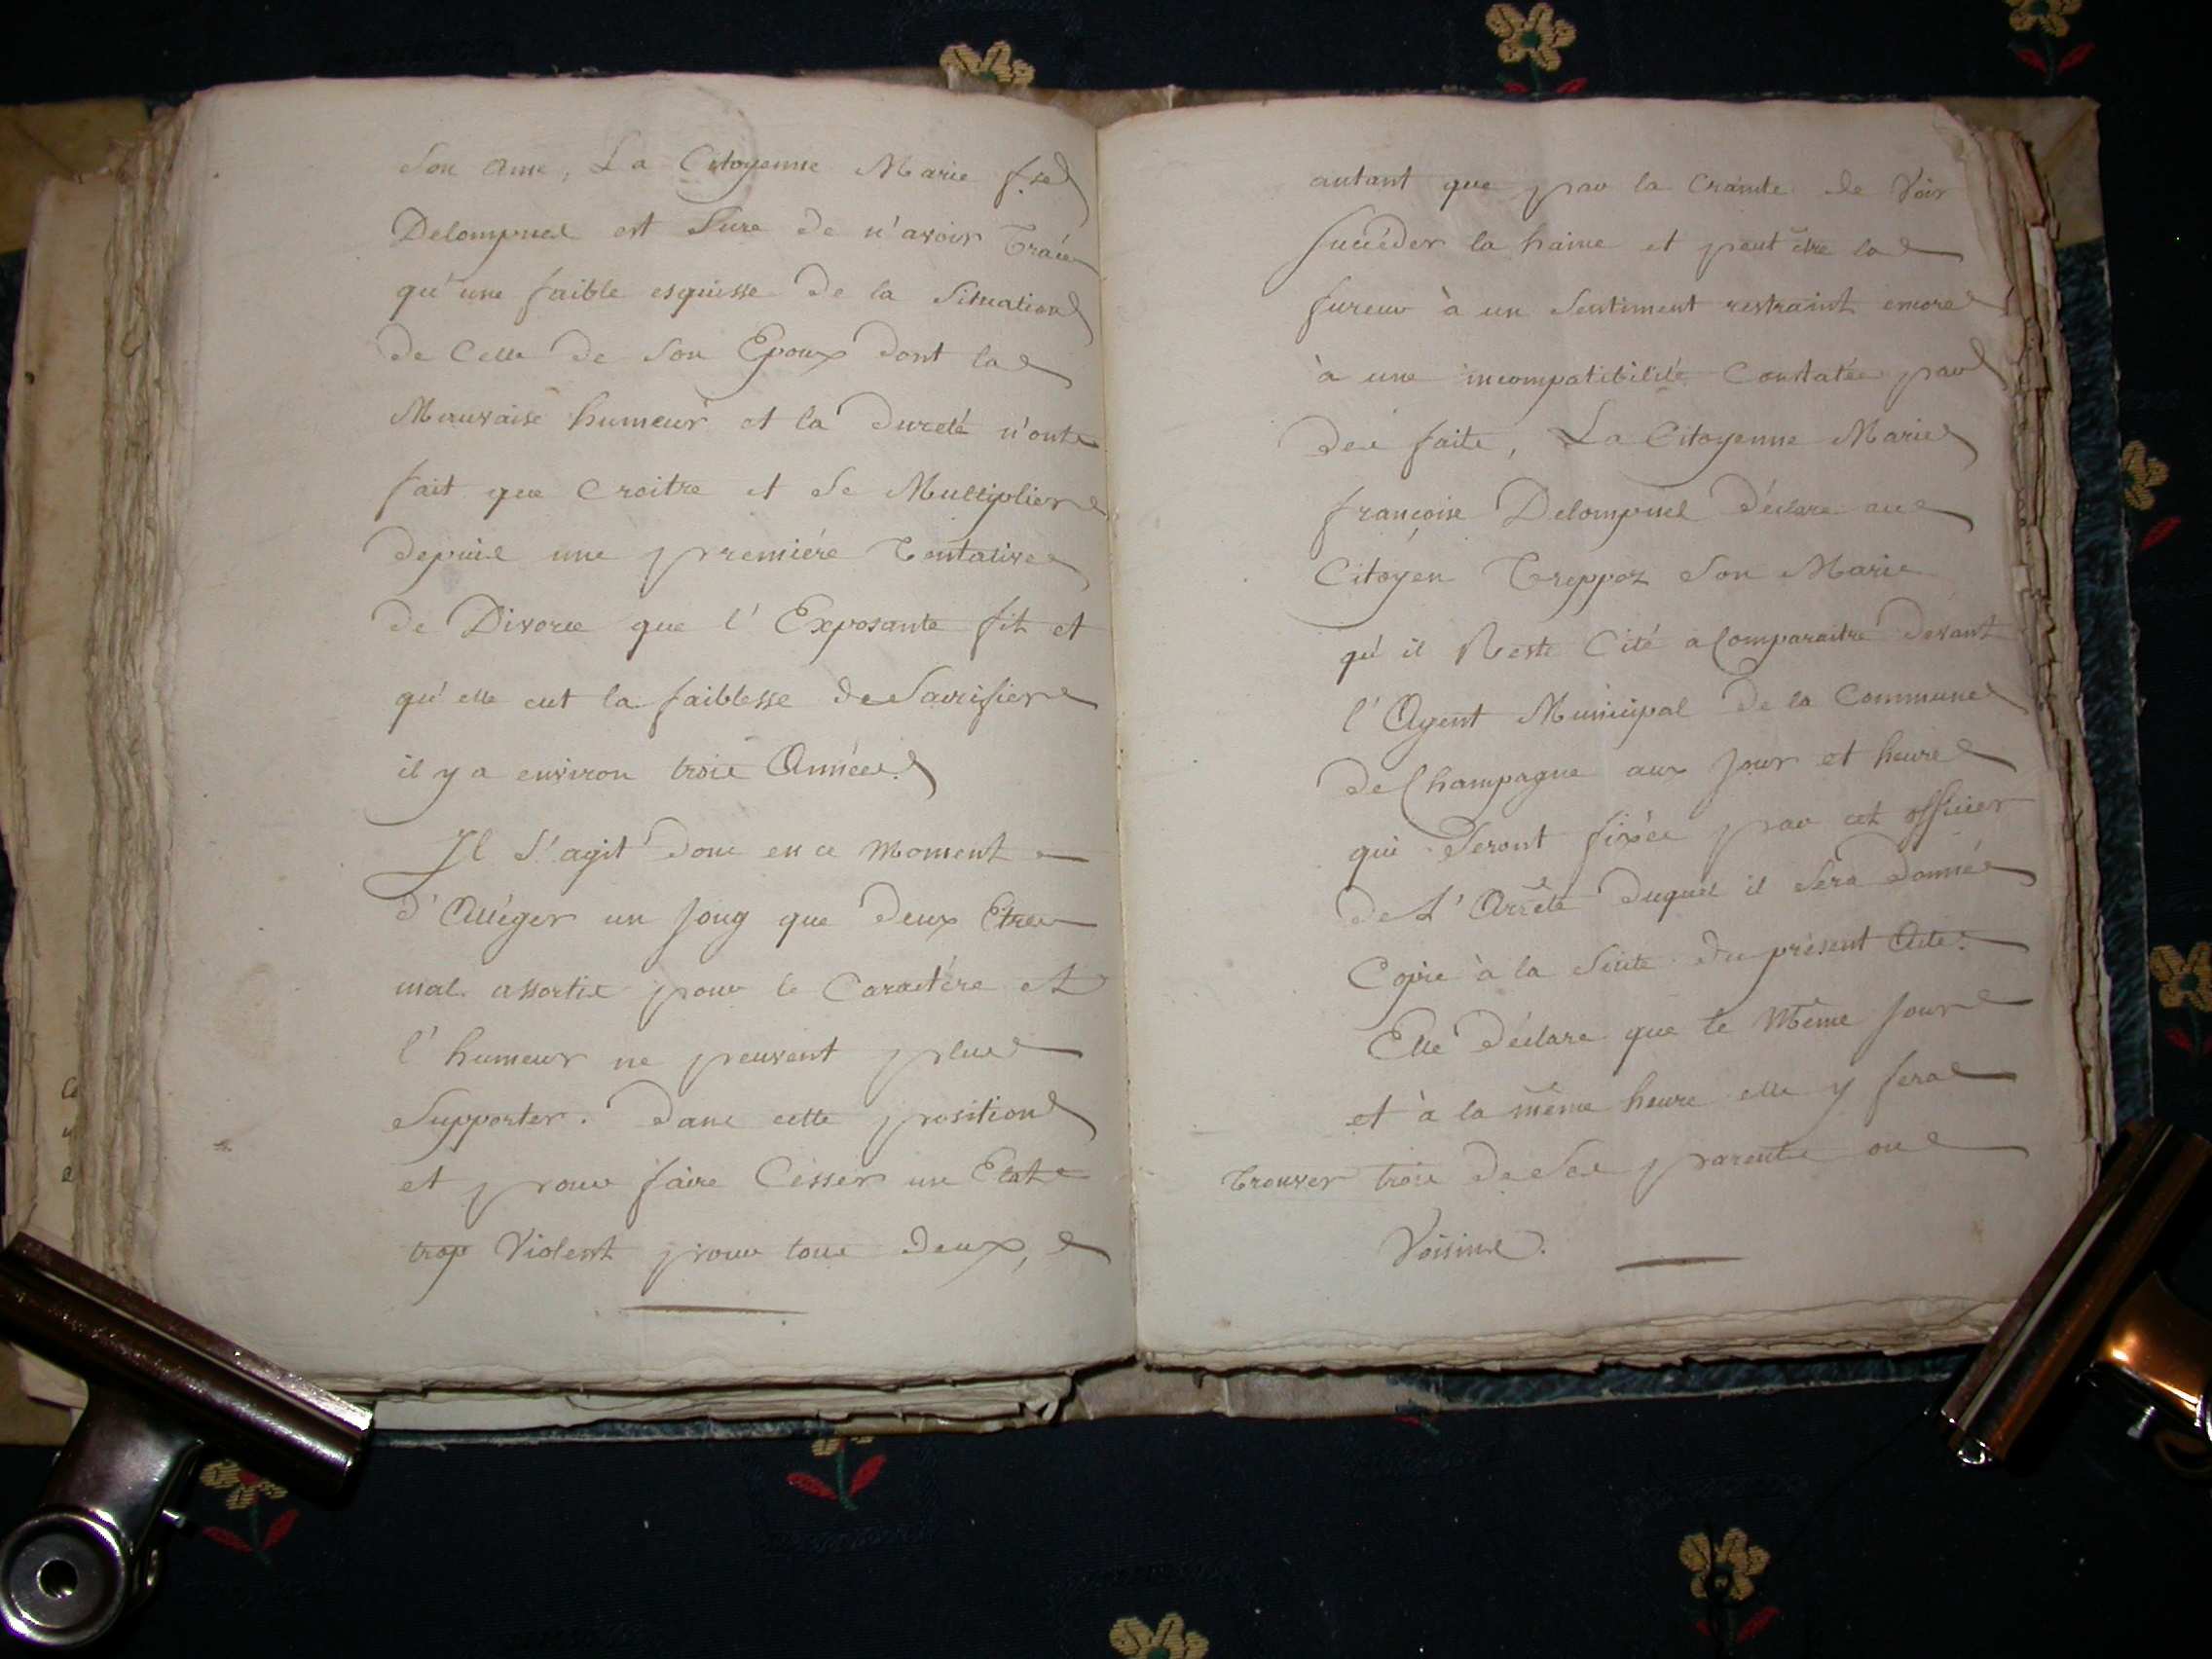 Son Ame, La Citoyenne Marie f.se
Delompnes est Sure de n'avoir Tracé
qu'une faible esquisse de la Situation
de Celle de Son Epoux dont la
Mauvaise humeur et la dureté n'ont
fait que Croitre et Se Multiplier
depuis une premiére Tentative
de Divorce que l'Exposante fit et
qu'elle eut la faiblesse de Sacrifier
il y a environ trois Années.
Il S'agit donc en ce Moment
d'Alléger un Joug que deux Etres
mal assortis pour le Caractére et
l'humeur ne peuvent plus
Supporter. dans cette position
et pour faire Cesser un Etat
trop Violent pour tous deux,
autant que par la Crainte de Voir
Succéder la haine et peut être la
fureur à un Sentiment restraint encore
à une incompatibilité Constatée par
des faits, La Citoyenne Marie
françoise Delompnes déclare au
Citoyen Treppoz Son Marie
qu'il Reste Cité a Comparaitre devant
l'Agent Municipal de la Commune
de Champagne aux Jour et heure
qui Seront fixés par cet officier
de L'Arrêté duquel il Sera donnée
Copie à la Suite du présent Acte.
Elle déclare que le Même Jour
et à la même heure elle y fera
Trouver trois de Ses parents ou
Voisins.